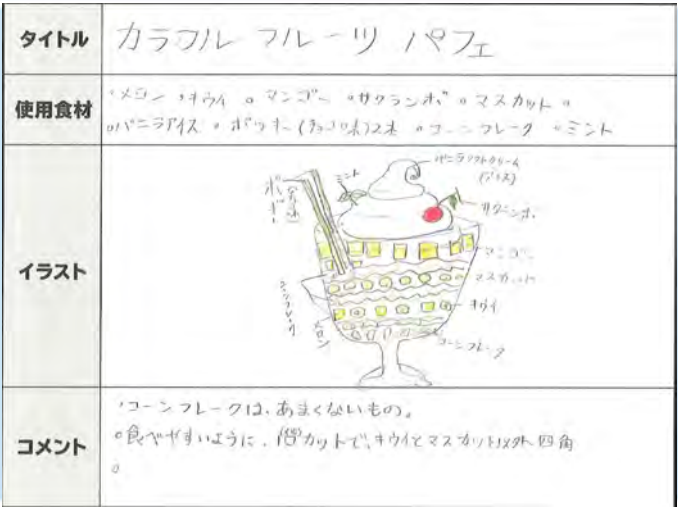 タイトル
カラフル フルーツ パフェ
使用食材
・メロン ・キウイ 。マンゴー 。サクランボ 。マスカット 。
。バニラアイス 。ポッキー(チョコ味)2本 。コーンフレーク 。ミント
イラスト
バニラソフトクリーム
(アイス)
ミント
サクランボ
ポッキー
マンゴー
マスカット
キウイ
メロン
コーンフレーク
コメント
・コーンフレークは、あまくないもの。
。食べやすいように、カットで、キウイとマスカット以外四角
。